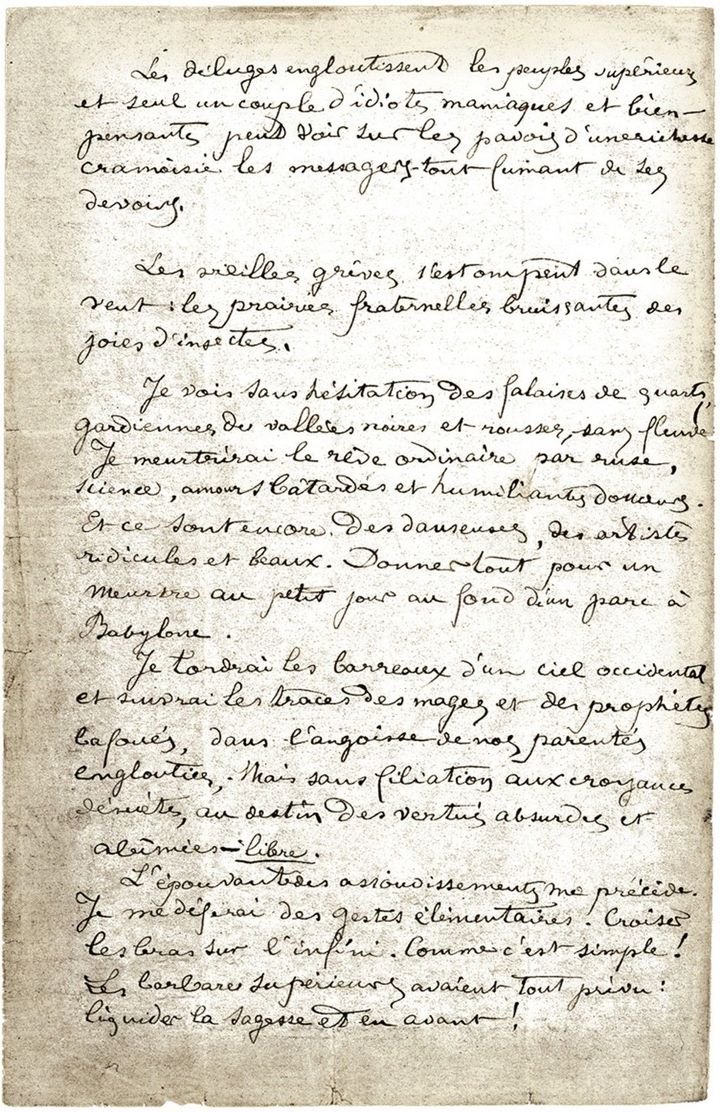 Les déluges engloutissent les peuples supérieurs
et seul un couple d'idiots maniaques et bien-
pensants peut voir sur les pavois d'une richesse
cramoisie les messagers tout fumant de ses
devoirs.
Les vieilles grèves s'estompent dans le
vent : les prairies fraternelles bruissantes des
joies d'insectes.
Je vois sans hésitation des falaises de quartz,
gardiennes du vallées noires et rousses, sans fleuve.
Je meurtrirai le rêve ordinaire par ruse,
science, amours bâtardes et humiliantes douceurs.
Et ce sont encore des danseuses, des artistes
ridicules et beaux. Donner tout pour un
meurtre au petit jour au fond d'un parc à
Babylone.
Je tordrai les barreaux d'un ciel occidental
et suivrai les traces des mages et des prophètes
bafoués, dans l'angoisse de nos parentés
englouties. Mais sans filiation aux croyances
désuètes, au destin des vertus absurdes et
abîmées - libre.
L'épouvante des assoudissements me précède.
Je me déferai des gestes élémentaires. Croiser
les bras sur l'infini. Comme c'est simple !
Les barbares supérieurs avaient tout prévu :
liquider la sagesse et en avant !